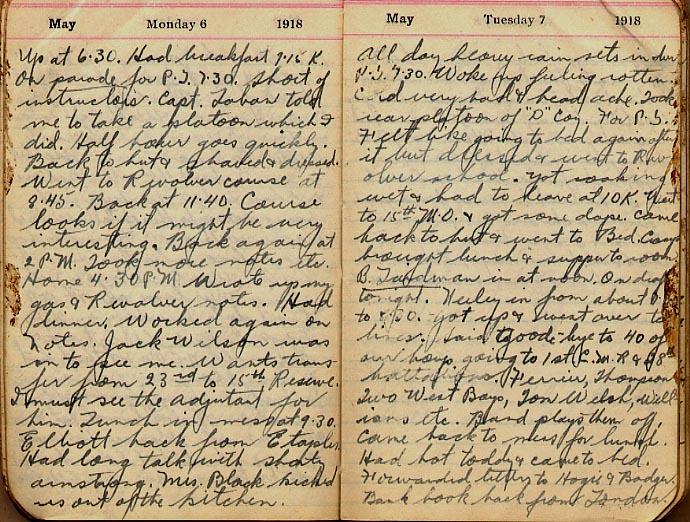 May Monday 6 1918
Up at 6.30. Had breakfast 7.15 K.
On parade for P.T. 7.30. Short of
instructors. Capt. told
me to take a platoon which I
did. Half hour goes quickly.
Back to hut & shaved & dressed.
Went to Revolver course at
8.45. Back at 11.40. Course
looks if it might be very
interesting. Back again at
2 P.M. Took more notes etc.
Home 4.30 P.M. Wrote up my
gas & Revolver notes. Had
dinner. Worked again on
notes. Jack Wilson was
in to see me. Wants trans
fer from 23rd to 15th Reserve.
I must see the adjutant for
him. Lunch in mess at 9.30.
Elliott back from Etaples.
Had long talk with Shorty
armstrong. Mrs. Black kicked
us out of the kitchen.
May Tuesday 7 1918
All day heavy rain sets in
P.T. 7.30. Woke up feeling rotten.
Cold very bad & head ache. Took
rear platoon of "D" Coy. For P.T.
Felt like going to bed again after
it but dressed & went to Rev
olver school. Got soaking
wet & had to leave at 10K. Went
to 15th M.O. & got some dope. Came
back to hut & went to Bed.
brought lunch & supper to room
B. in at noon. On draft
tonight. in from about
to 8.30. Got up & went over to
lines. Said goode-bye to 40 of
our boys going to 1st C.M.R &
battalions. Ferrier, Thompson
Two West Boys, Tom Welsh, Will
iams etc. Band plays them off.
Came back to mess for lunch.
Had hot toddy & came to bed.
Forwarded letters to Hogie & Badger.
Bank book back from London.